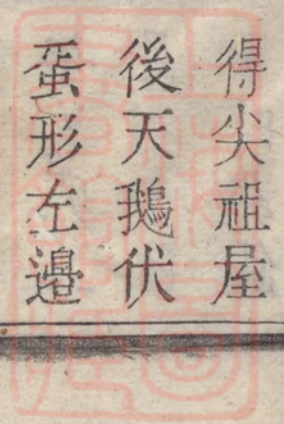 得尖祖屋
後天鵝伏
蛋形左邉